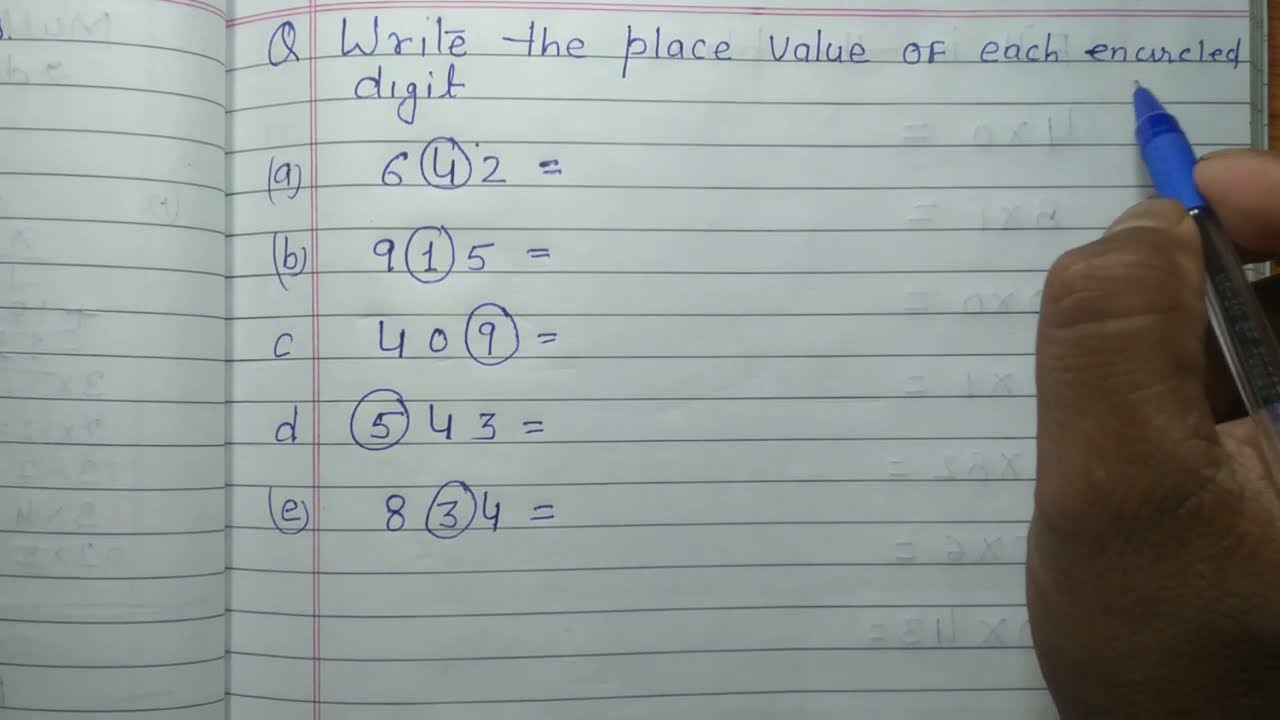 Q Write the place value of each encircled
digit
(a) 6 4 2 =
(b) 9 1 5 =
c 4 0 9 =
d 5 4 3 =
(e) 8 3 4 =